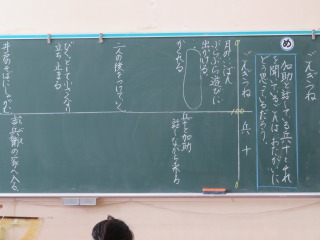 め
ごんぎつね
加助と話している兵十とそれ
を聞いているごんは、おたがいに
どう思っているだろう。
ごんぎつね
兵十
100
0
月のいいばん
ぶらぶら遊びに
出かける。
かくれる
兵十と加助
話しながら来る
二人の後をつけていく
びくっとして小さくなり
立ち止まる
井戸のそばにしゃがむ
吉兵衛の家へ入る